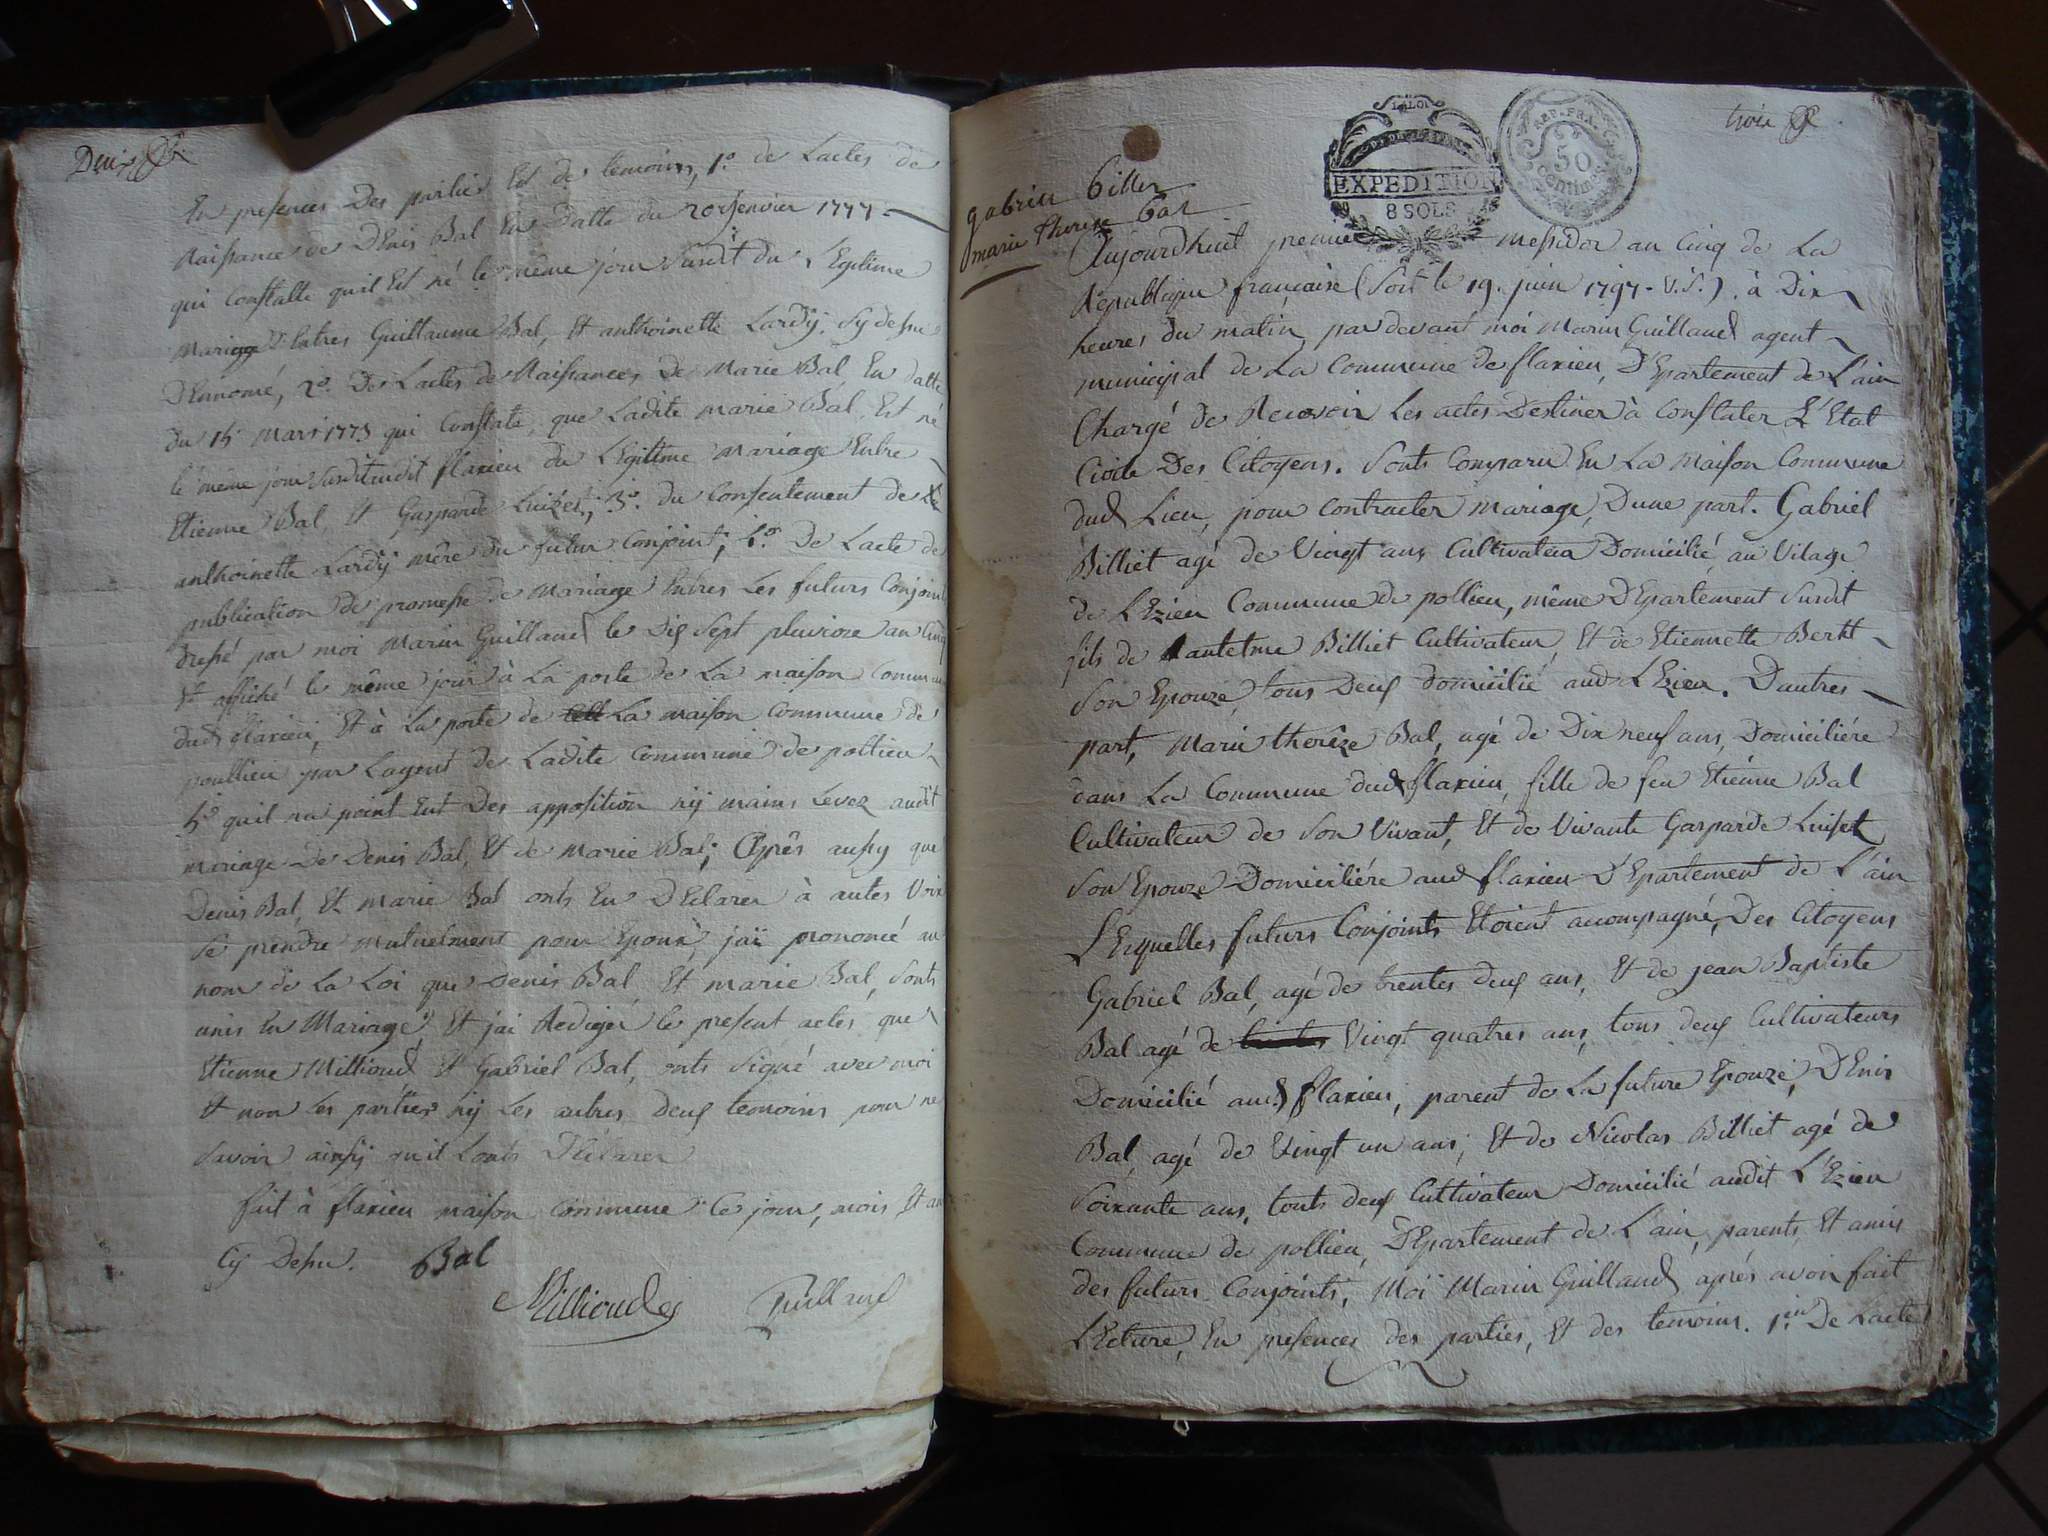 Deux
En presences Des parties Et de temoins, 1.º de Lactes de
Naissance de Denis Bal En Datte du 20 Jenvier 1777
qui Constatte quil Est né le même jour Susdit du LEgitime
Mariage Entres Guillaume Bal, Et anthoinette Lardÿ, Sy dessus
DEnnomé, 2º. De Lactes de Naissances De Marie Bal En datte
du 15 Mars 1773 qui Constate, que Ladite marie Bal, Est né
le même jour Susdit audit flaxieu du LEgitime Mariage Entre
Etienne Bal, Et Gasparde Luizet, 3º. du Consentement de
anthoinette Lardÿ mère du futur Conjoint, 4º De Lacte de
publication de promesse de Mariage Entres Les futurs Conjoint
dressé par moi Marin Guillaud le Dis Sept pluviose an Cinq
Et affiché le même jour à La porte de La maison Commune
dud flaxieu, Et à La porte de La maison Commune de
poullieu par Lagent de Ladite Commune de pollieu
5º quil na point Eut Des apposition nÿ mains Levez audit
mariage De Denis Bal, Et de Marie Bal; Après aussy que
Denis Bal, Et Marie Bal onts Eu DEclarer à autes Voix
Se prendre Mutuelment pour Epoux, jaï prononcé au
nom de La Loi que Denis Bal, Et marie Bal, Sonts
unis En Mariage, Et jai Rediger le present actes que
Etienne Millioud Et Gabriel Bal, onts Signé avec moi
Et non Les parties nÿ Les autres deux temoins pour ne
Savoir ainsy quil Lonts DEclarer
fait à flaxieu maison Commune Ce jour, mois Et an
Cy Dessus. Bal
Millioud Guillaud
trois
LA LOI
EXPEDITION
8 SOLS
REP. FRA.
50
Centimes
gabriel billet
marie therese bal
Aujourdhuit premier messidor an Cinq de La
République française (Soit le 19. juin 1797. V.S.). à Dix
heures du matin, par devant moi Marin Guillaud agent
municipal de La Commune de flaxieu, DEpartement de L'ain
Chargé de Recevoir Les actes Destiner à Constater LEtat
Civile Des Citoyens. Sonts Comparu En La Maison Commune
dud Lieu, pour Contracter Mariage, Dune part. Gabriel
Billiet agé de Vingt ans Cultivateur Domicilié, au Vilage
de LEzieu Commune de pollieu, même DEpartement Susdit
fils de antelme Billiet Cultivateur, Et de Etiennette Bertet
Son Epouze, tous Deux domicilié aud LEzieu. Dautres
part, Marie therêze Bal, agé de Dix neuf ans, Domiciliére
dans La Commune dud flaxieu, fille de feu Etiénne Bal
Cultivateur de Son Vivant, Et de Vivante Gasparde Luiset
Son Epouze Domiciliére aud flaxieu DEpartement de L'ain
LEsquelles futurs Conjoints Etoient accompagné, Des Citoyens
Gabriel Bal, agé de trentes deux ans, Et de jean Baptiste
Bal agé de Vingt quatres ans, tous deux Cultivateurs
Domicilié aud flaxieu, parent de La future Epouze, DEnis
Bal, agé de Vingt un ans, Et de Nicolas Billiet agé de
Soixante ans, touts deux Cultivateur Domicilié audit LEzieu
Commune de pollieu, DEpartement de L'ain, parents Et amis
des futurs Conjoints, Moï Marin Guillaud après avoir fait
LEcture, En presences des parties, Et des temoins. 1.º De Lacte